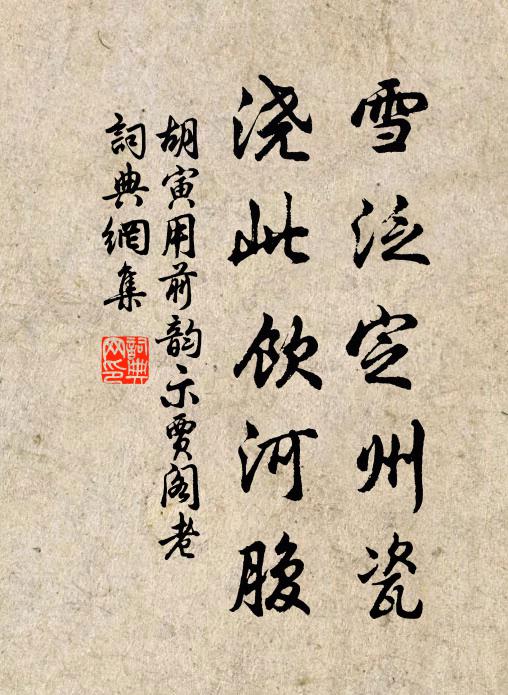 雪泛定州瓷
浇此饮河腹
胡寅用前韵示贾阁老
词典網集
詞典網印